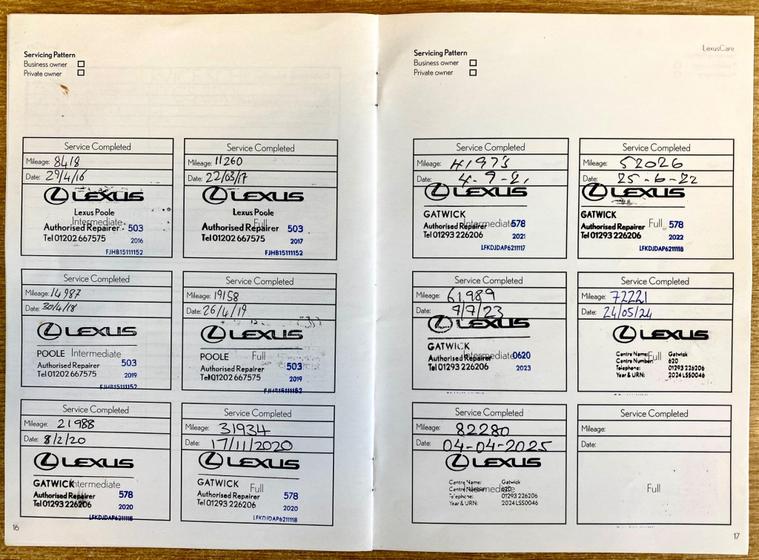 Servicing Pattern
Business owner
Private owner
Service Completed
Mileage: 8418
Date: 29/4/16
LEXUS
Lexus Poole
Intermediate
Authorised Repairer 503
Tel 01202 667575 2016
FJHB15111152
Service Completed
Mileage: 11260
Date: 22/03/17
LEXUS
Lexus Poole
Full
Authorised Repairer 503
Tel 01202 667575 2017
FJHB15111152
Service Completed
Mileage: 14987
Date: 30/4/18
LEXUS
POOLE Intermediate
Authorised Repairer 503
Tel 01202 667575 2019
FJHB15111152
Service Completed
Mileage: 19158
Date: 26/4/19
LEXUS
POOLE Full
Authorised Repairer 503
Tel 01202 667575 2019
FJHB15111152
Service Completed
Mileage: 21988
Date: 8/2/20
LEXUS
GATWICK Intermediate
Authorised Repairer 578
Tel 01293 226206 2020
LFKDJDAP6211118
Service Completed
Mileage: 31934
Date: 17/11/2020
LEXUS
GATWICK Full
Authorised Repairer 578
Tel 01293 226206 2020
LFKDJDAP6211118
16
Servicing Pattern
Business owner
Private owner
LexusCare
Service Completed
Mileage: 41973
Date: 4-9-21
LEXUS
GATWICK
Intermediate 578
Authorised Repairer
Tel 01293 226206 2021
LFKDJDAP6211117
Service Completed
Mileage: 52026
Date: 25-6-22
LEXUS
GATWICK
Full 578
Authorised Repairer
Tel 01293 226206 2022
LFKDJDAP6211118
Service Completed
Mileage: 61989
Date: 9/7/23
LEXUS
GATWICK
Intermediate 0620
Authorised Repairer
Tel 01293 226206 2023
Service Completed
Mileage: 72221
Date: 24/05/24
LEXUS
Centre Name: Gatwick
Full
Centre Number: 620
Telephone: 01293 226206
Year & URN: 2024 LSS0046
Service Completed
Mileage: 82280
Date: 04-04-2025
LEXUS
Centre Name: Gatwick
Intermediate
Centre Number: 620
Telephone: 01293 226206
Year & URN: 2024 LSS0046
Service Completed
Mileage:
Date:
Full
17